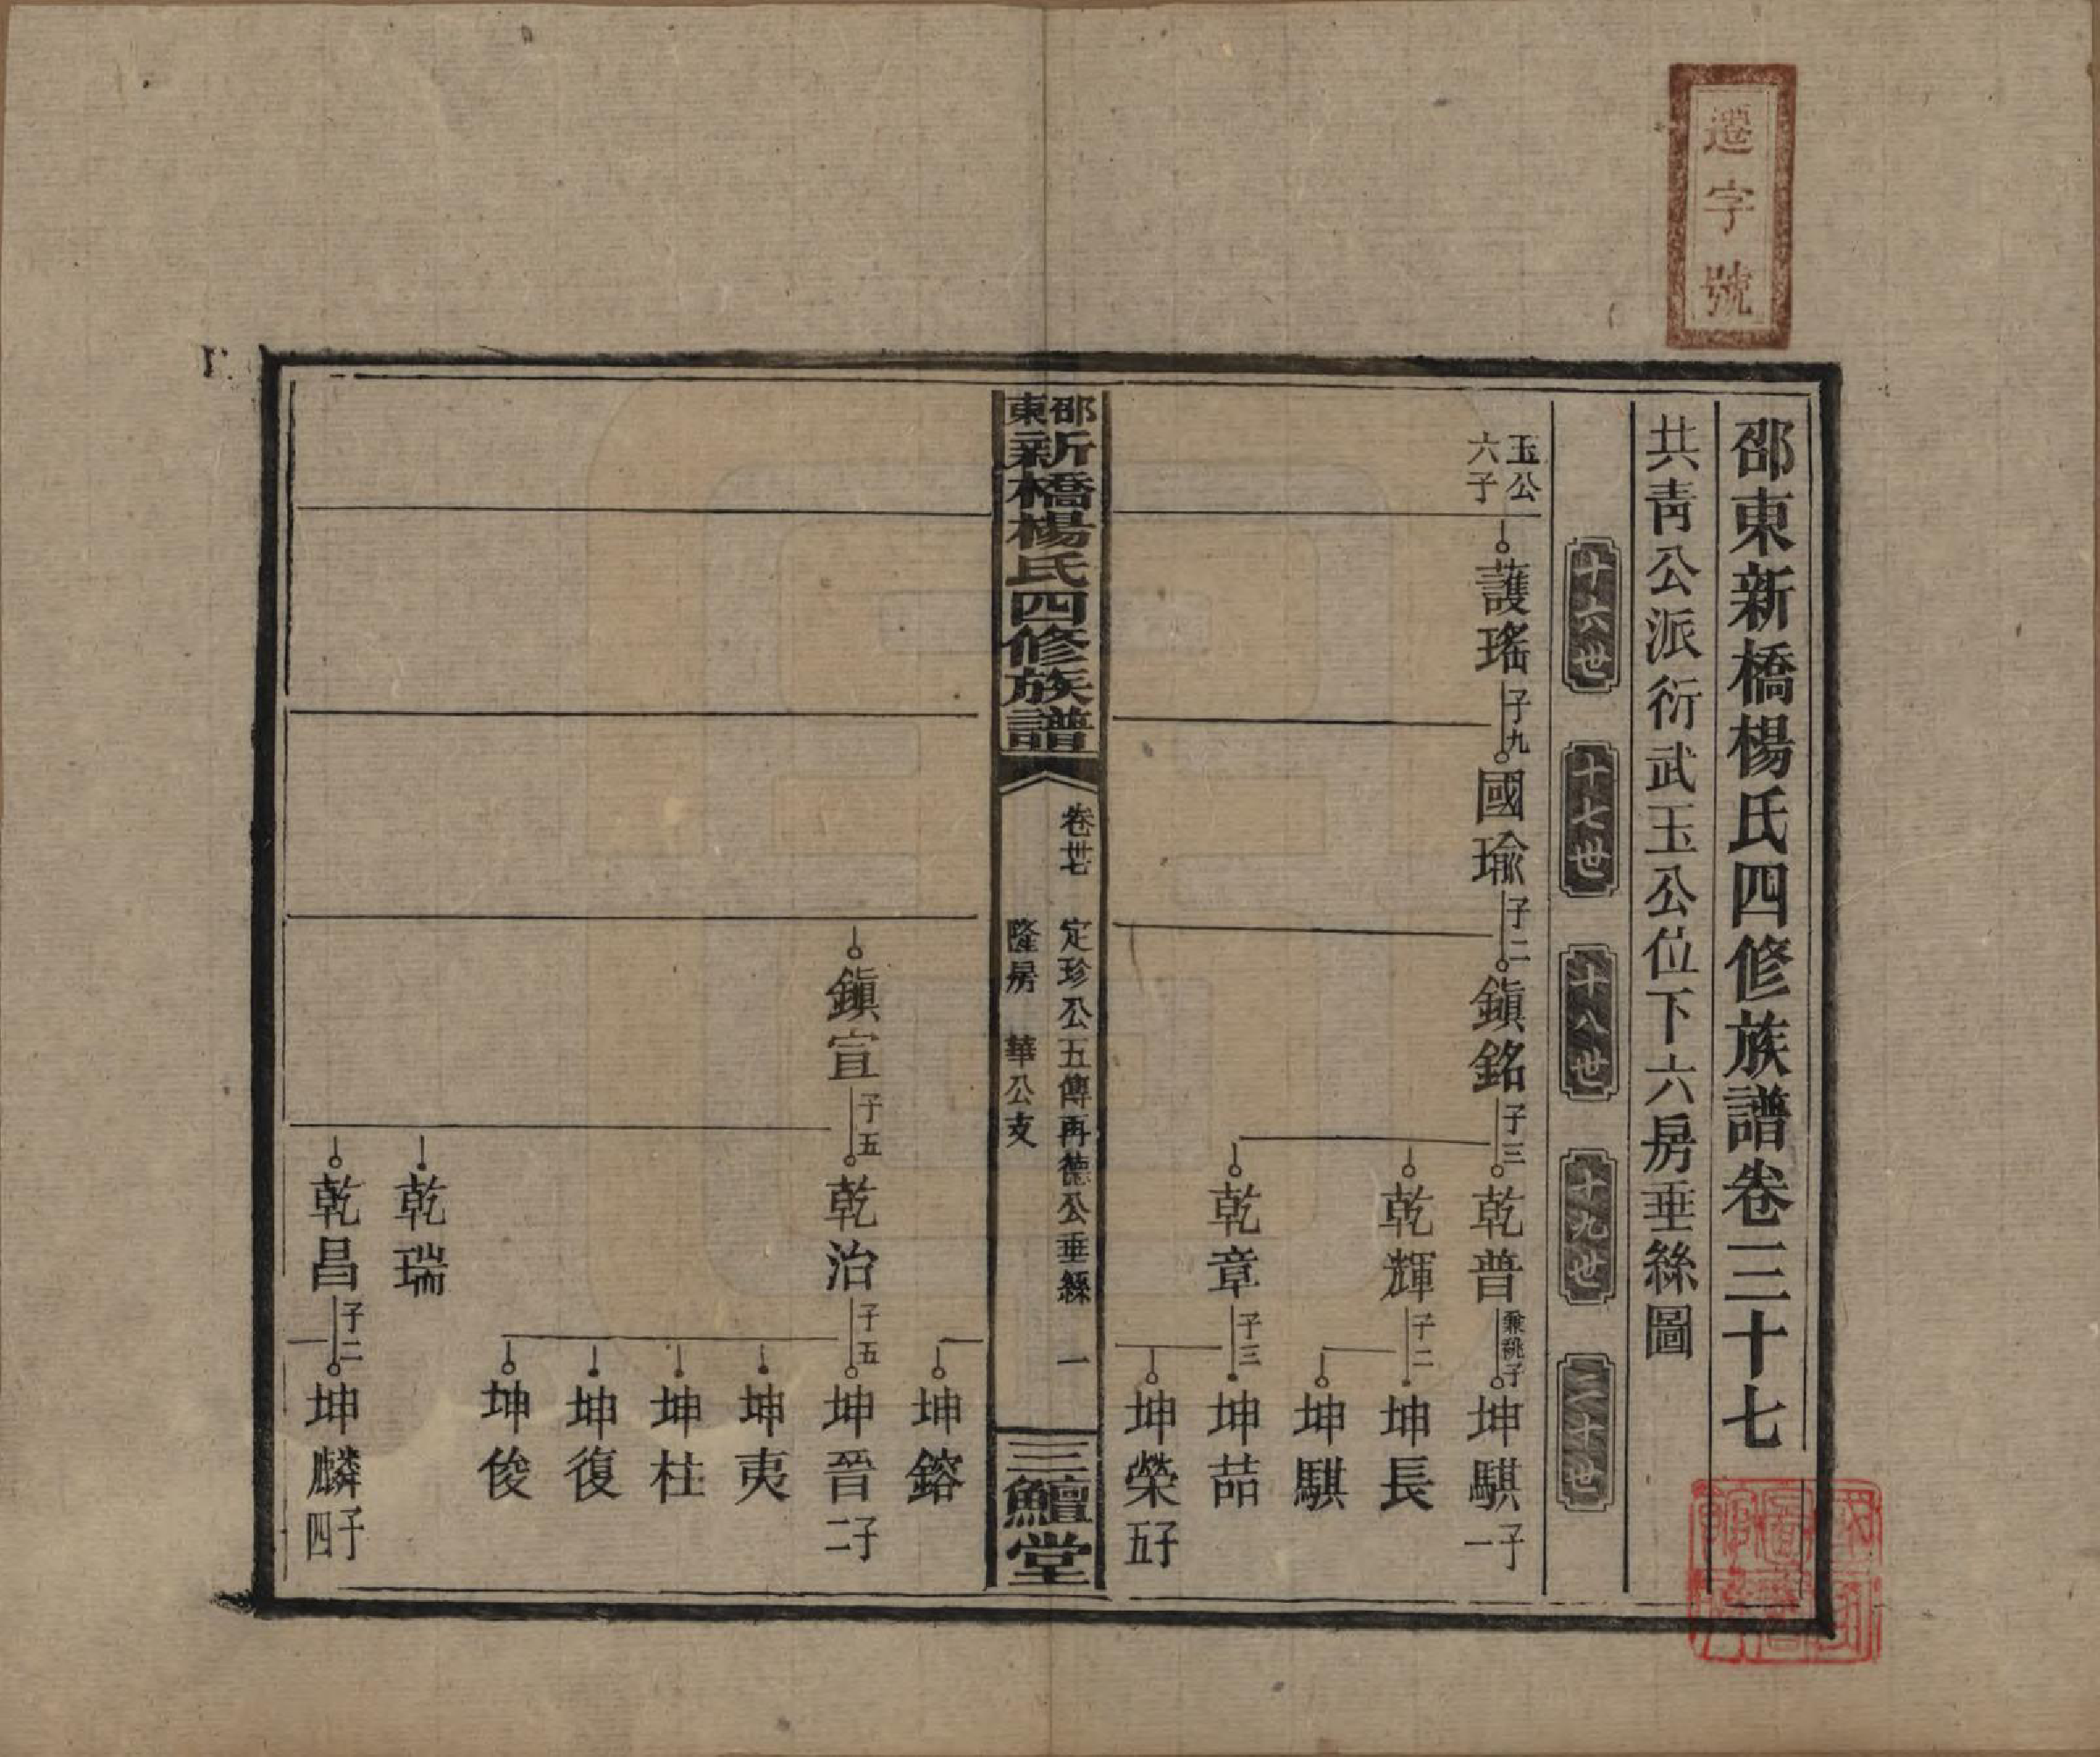 遷字號
邵東新橋楊氏四修族譜卷三十七
共青公派衍武玉公位下六房垂絲圖
十六世
十七世
十八世
十九世
二十世
玉公
六子
護瑤
子九
國瑜
子二
鎭銘
子三
乾普
兼祧子
坤騏
子一
乾輝
子二
坤長
坤騏
乾章
子三
坤喆
坤榮
五子
邵東新橋楊氏四修族譜
卷卅七
定珍公五傳再德公垂絲
一
隆房
華公支
三鱣堂
坤鎔
鎭宣
子五
乾治
子五
坤晉
二子
坤夷
坤柱
坤復
坤俊
乾瑞
乾昌
子二
坤麟
四子